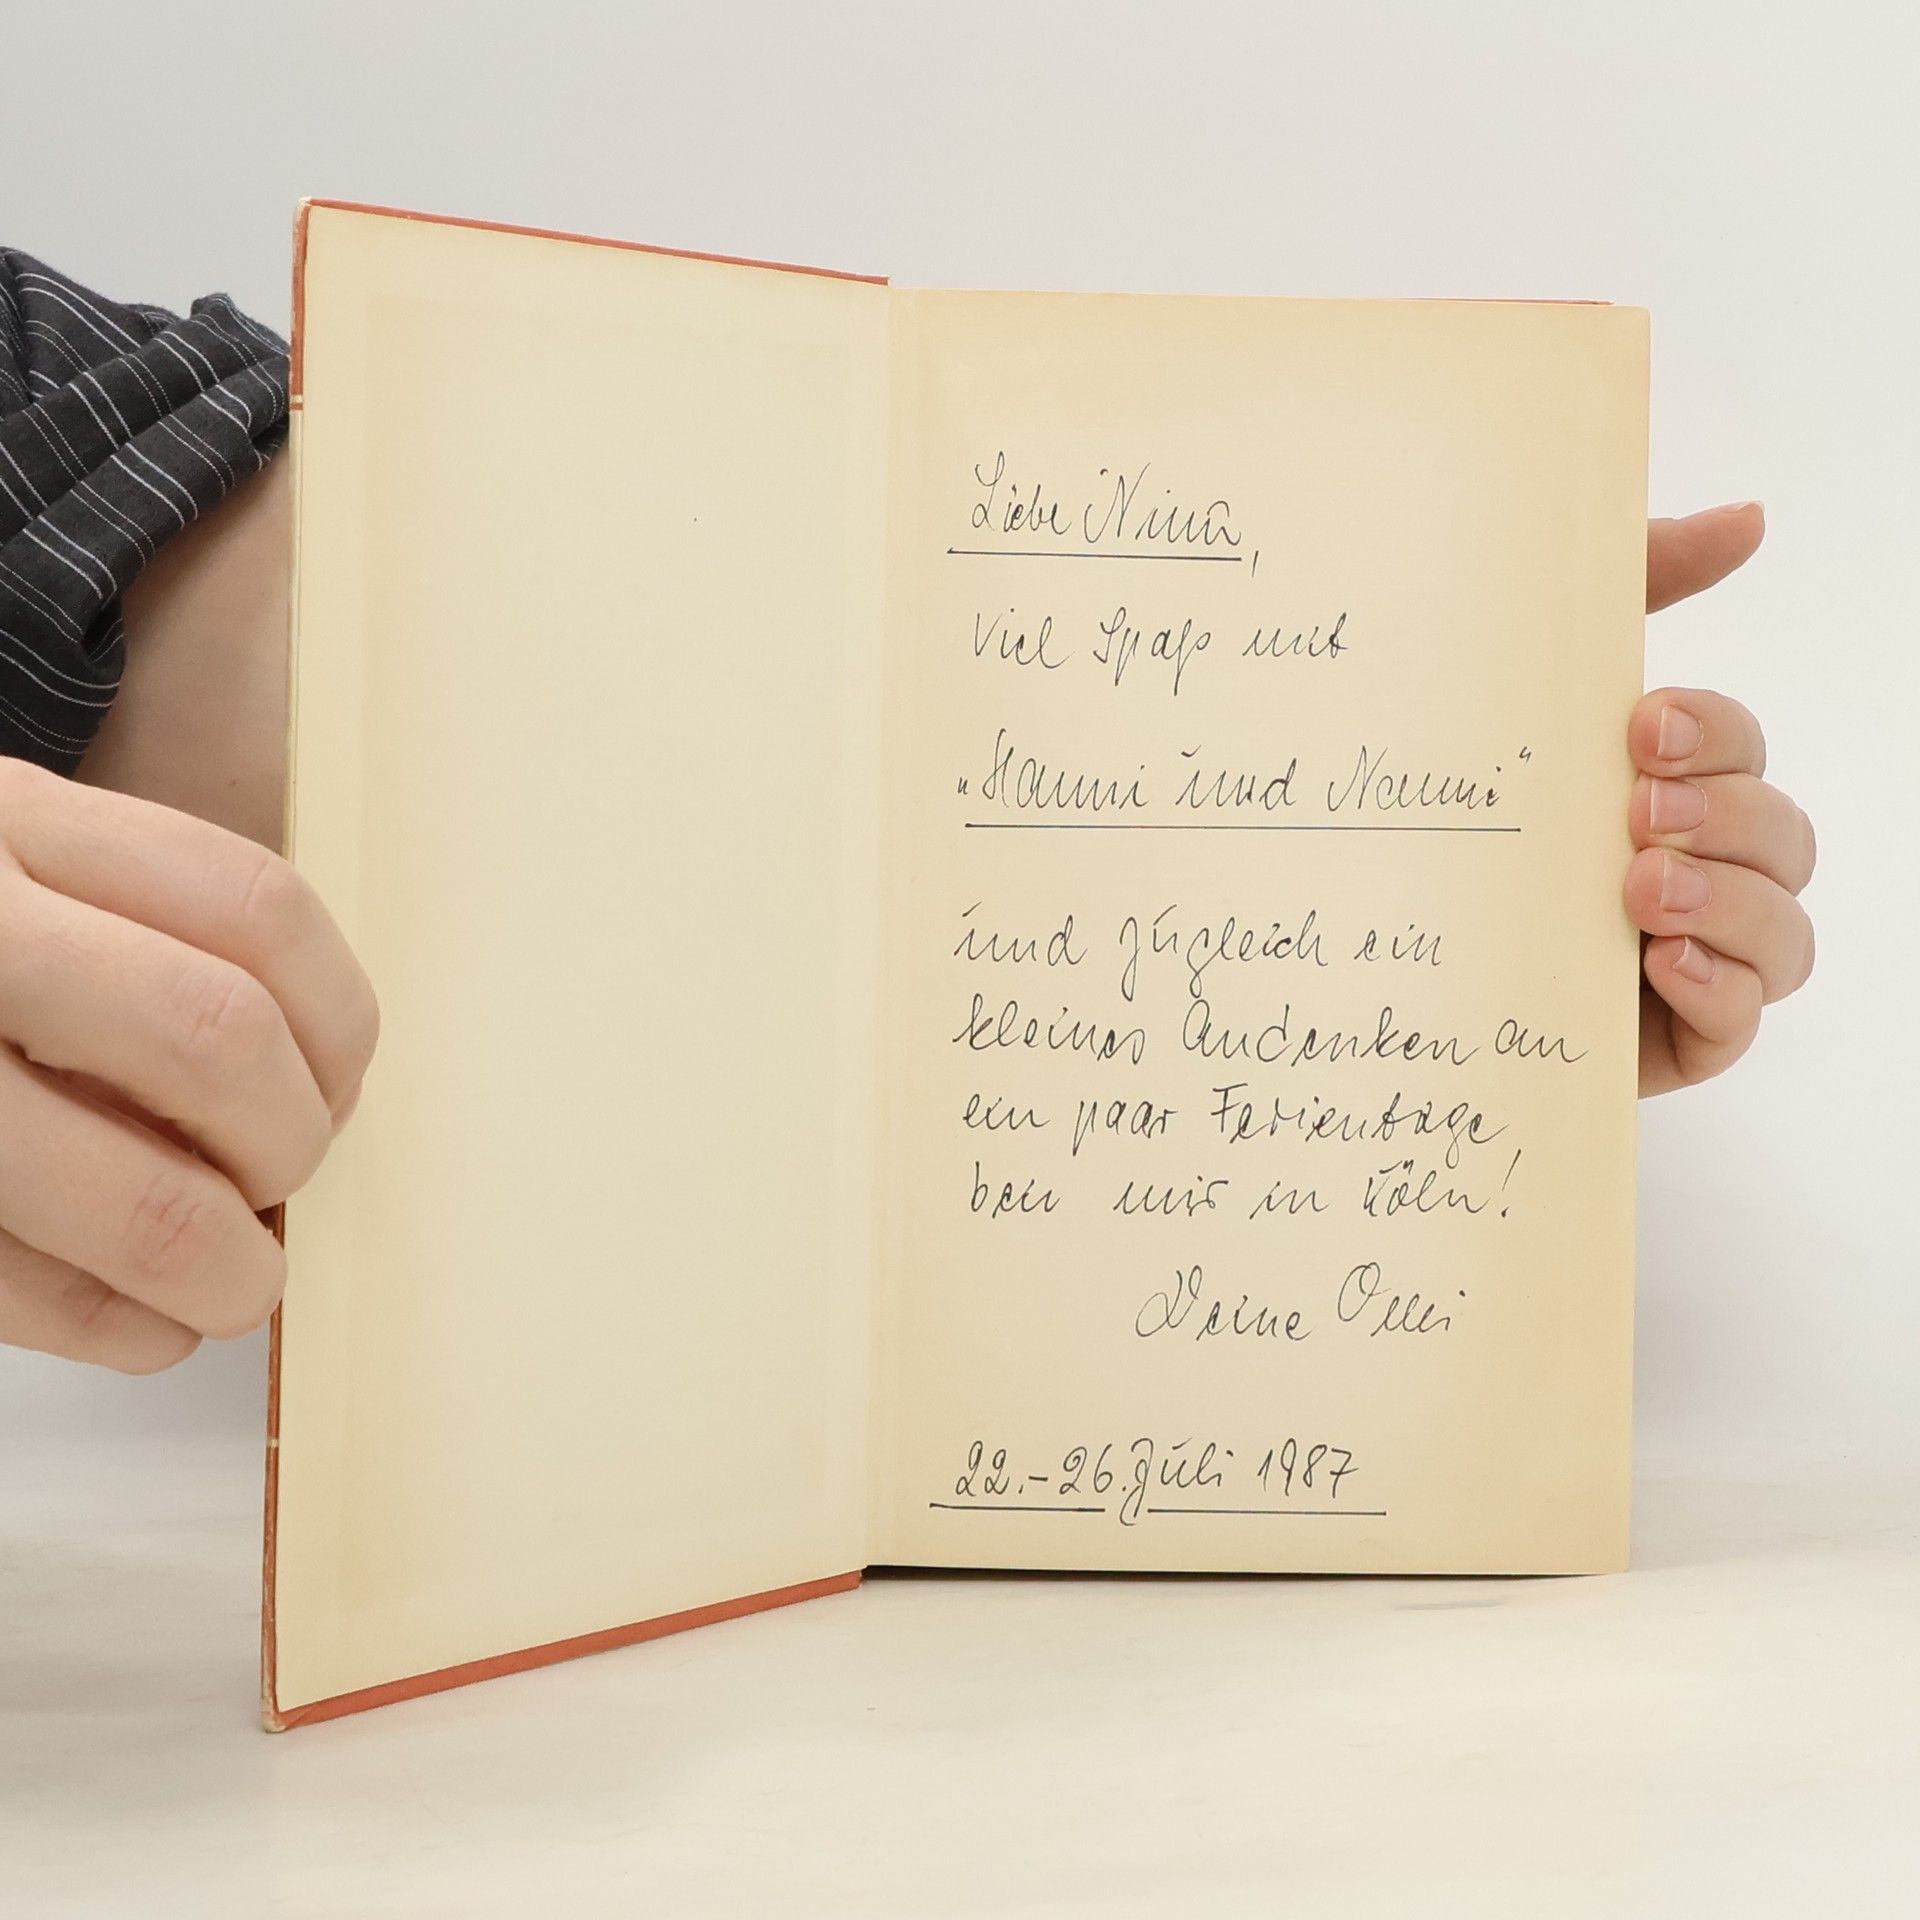 Liebe Nina,
Viel Spaß mit
„Hanni und Nanni“
und zugleich ein
kleines Andenken an
ein paar Ferientage
bei mir in Köln!
Deine Olli
22.-26. Juli 1987